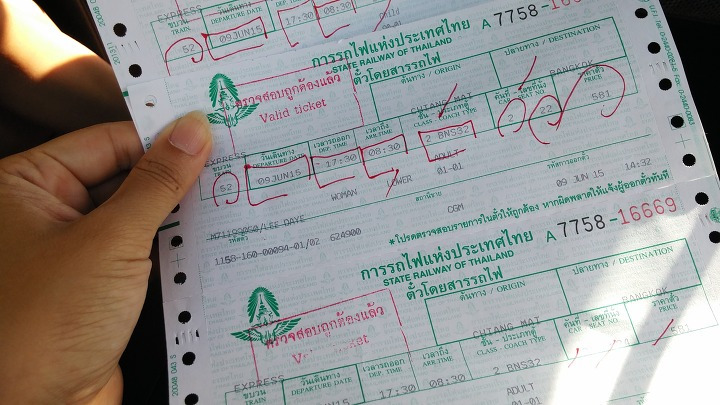 EXPRESS
ขบวน TRAIN
วันเดินทาง DEPARTURE DATE
52 09JUN15 17:30 08:30
01-01
การรถไฟแห่งประเทศไทย A 7758-
STATE RAILWAY OF THAILAND
ตั๋วโดยสารรถไฟ
ตรวจสอบถูกต้องแล้ว
Valid ticket
ต้นทาง / ORIGIN ปลายทาง / DESTINATION
CHIANG MAI BANGKOK
EXPRESS
ขบวน วันเดินทาง เวลารถออก เวลาถึง ชั้น - ประเภทตู้ คันที่ - เลขที่นั่ง ราคาตั๋ว
TRAIN DEPARTURE DATE DEP. TIME ARR.TIME CLASS - COACH TYPE CAR SEAT NO. PRICE
52 09JUN15 17:30 08:30 2 BNS32 2 22 581
ADULT
WOMAN LOWER 01-01
/LEE DAYE สถานีขาย วันที่การออกตั๋ว
รหัสตั๋ว CGM 09 JUN 15 14:32
1158-160-00094-01/02 624900
*โปรดตรวจสอบรายการในตั๋วให้ถูกต้อง หากผิดพลาดให้แจ้งผู้ออกตั๋วทันที
การรถไฟแห่งประเทศไทย A 7758-16669
STATE RAILWAY OF THAILAND
ตั๋วโดยสารรถไฟ
ตรวจสอบถูกต้องแล้ว
ticket
ต้นทาง / ORIGIN ปลายทาง / DESTINATION
CHIANG MAI BANGKOK
EXPRESS
ขบวน วันเดินทาง เวลารถออก เวลาถึง ชั้น - ประเภทตู้ คันที่ - เลขที่นั่ง ราคาตั๋ว
TRAIN DEPARTURE DATE DEP. TIME ARR.TIME CLASS - COACH TYPE CAR SEAT NO. PRICE
52 09JUN15 17:30 08:30 2 BNS32 581
ADULT
01-01